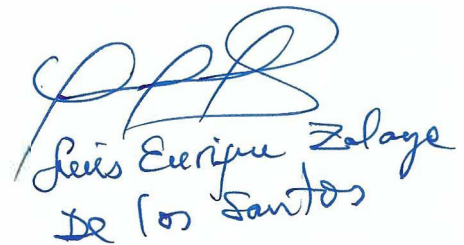 Luis Enrique Zelaya
De los Santos